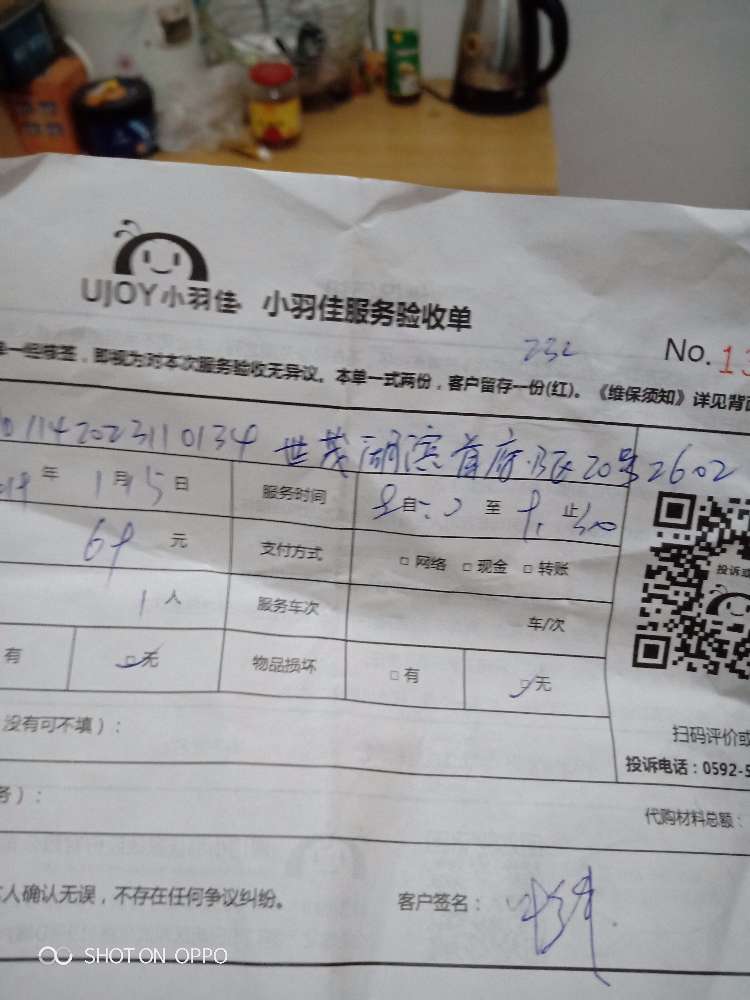 UJOY小羽佳 小羽佳服务验收单
232 No. 13
单一经核签，即视为对本次服务验收无异议。本单一式两份，客户留存一份(红)。《维保须知》详见背面
01142023110134 世茂湖滨首府 B区20号2602
年 1月15日 服务时间 自 至 止
元 支付方式 □网络 □现金 □转账
1人 服务车次 车/次
有 □无 物品损坏 □有 □无
投诉或
没有可不填）：
扫码评价或
投诉电话：0592-5
务）：
代购材料总额：
人确认无误，不存在任何争议纠纷。 客户签名：
SHOT ON OPPO